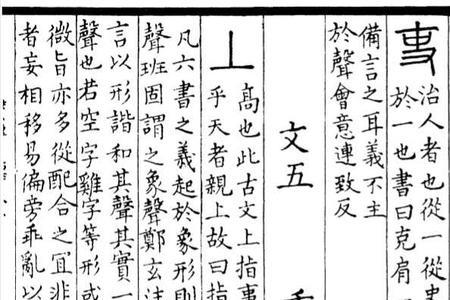 叓治人者也從一從史
於一也書曰克肩
備言之耳義不主
於聲會意連致反
文五
丄高也此古文上指事
乎天者親上故曰指
凡六書之義起於象形則
聲班固謂之象聲鄭玄注
言以形諧和其聲其實一
聲也若空字雞字等形或
微旨亦多從配合之宜非
者妄相移易偏旁乖亂以